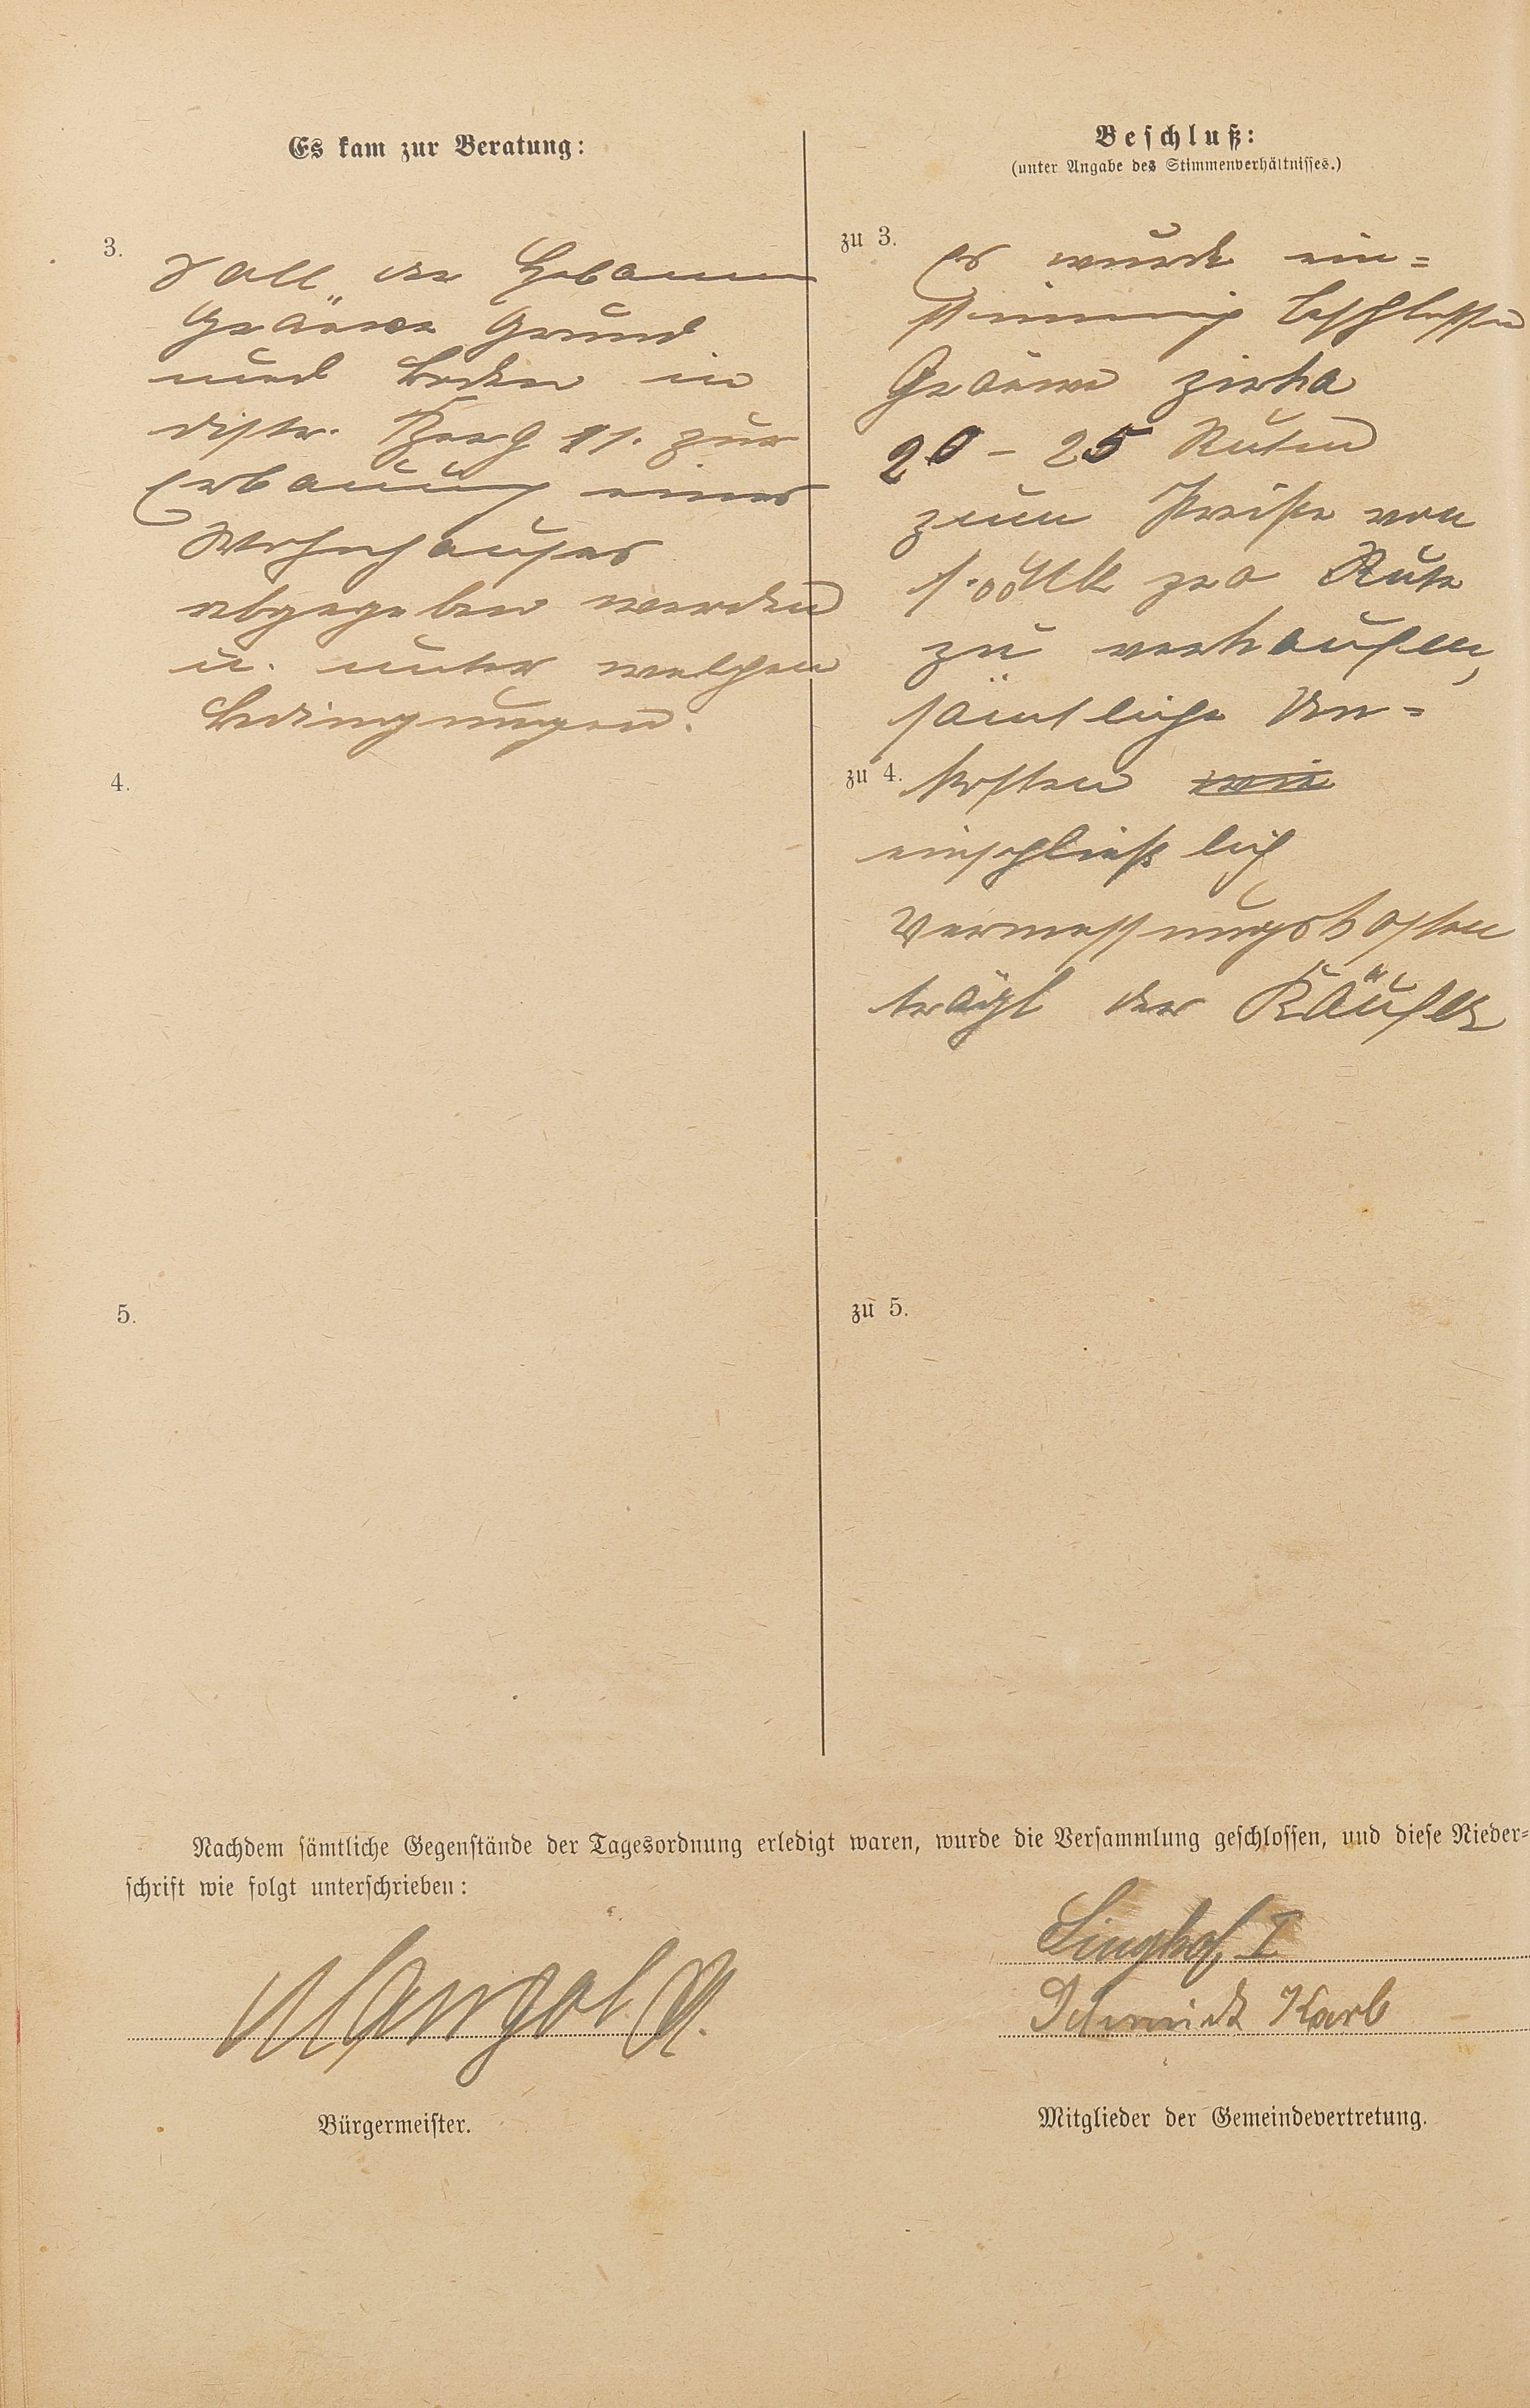 Es kam zur Beratung:
3.
Soll der Hebamme
Gräwe Grund
und Boden in
distr. 11. zur
Erbauung eines
Wohnhauses
abgegeben werden
u. unter welchen
Bedingungen.
4.
5.
Beschluß:
(unter Angabe des Stimmenverhältnisses.)
zu 3.
Es wurde ein=
stimmig beschlossen
Gräwe zirka
20 - 25 Ruten
zum Preise von
1.00 Mk pro Rute
zu verkaufen,
sämtliche Un=
zu 4.
kosten wie
einschließlich
Vermessungskosten
trägt der Käufer
zu 5.
Nachdem sämtliche Gegenstände der Tagesordnung erledigt waren, wurde die Versammlung geschlossen, und diese Nieder=
schrift wie folgt unterschrieben:
Singhof I
Schmidt Karl
Bürgermeister.
Mitglieder der Gemeindevertretung.